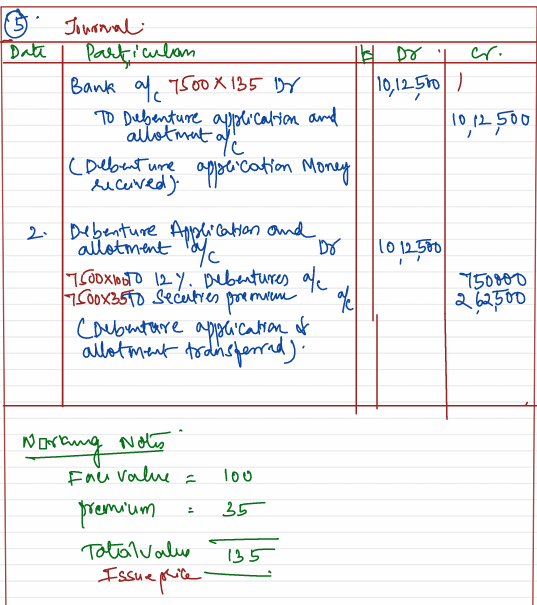 5 Journal
Date Particulars Dr. Cr.
Bank a/c 7500 X 135 Dr 10,12,500
To Debenture application and 10,12,500
allotment a/c
(Debenture application Money
received).
2. Debenture Application and
allotment a/c Dr 10,12,500
7500X100 To 12%. Debentures a/c 750000
7500X35 To Secutres premium a/c 2,62,500
(Debenture application &
allotment transferred).
Working Notes
Face value = 100
premium = 35
Total value 135
Issue price